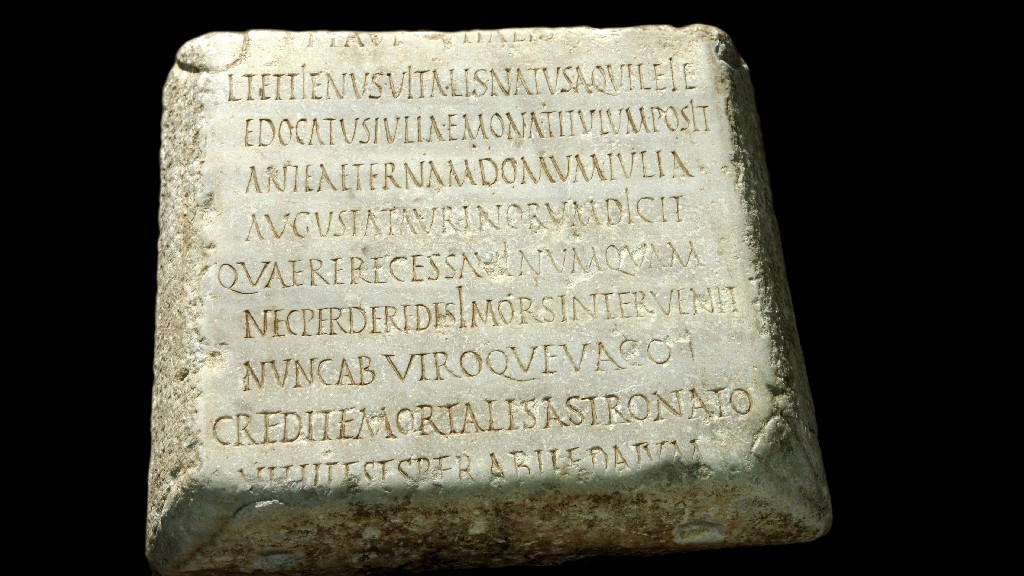 LTETTIENUSVITALISNATUSAQUILEIE
EDOCATUSIULIAEMONATITULUMPOSIT
ANTEAETERNAMDOMUMIULIA
AUGUSTATAURINORUMDICIT
QVAERERECESSAVINUMQUAM
NECPERDEREDESIMORSINTERVENIT
NUNCABVTROQUEVACO
CREDITEMORTALISASTRONATO
NIHILESTSPERABILEDATUM